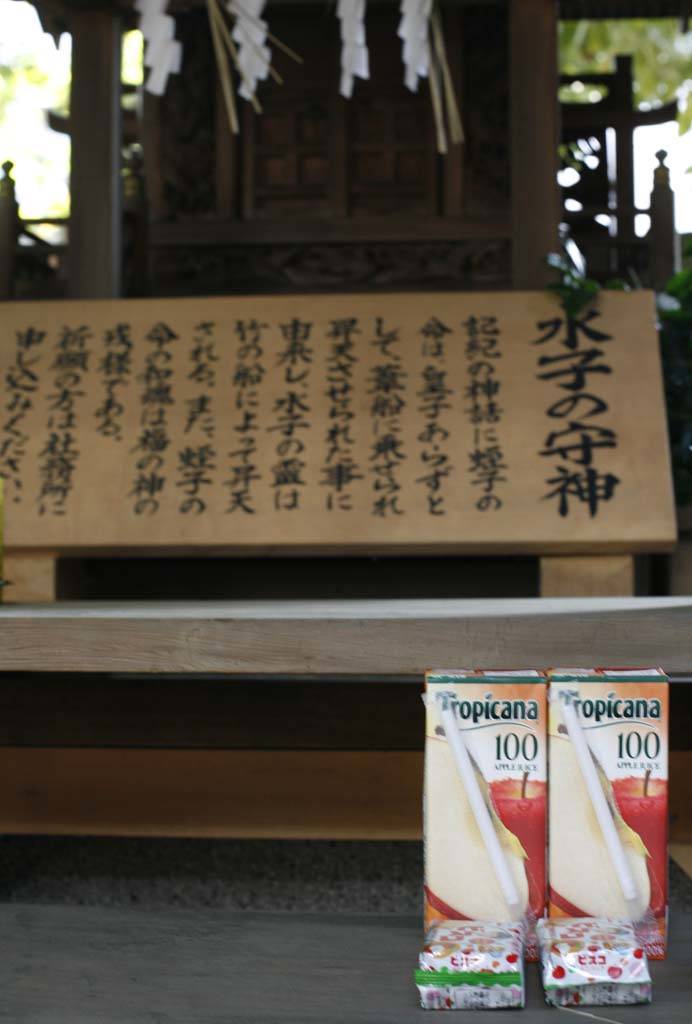 水子の守神
記紀の神話に蛭子の
命は、皇子あらずと
して、葦船に乗せられ
昇天させられた事に
由来し、水子の霊は
竹の船によって昇天
される。また、蛭子の
命の和魂は福の神の
戎様である。
祈願の方は社務所に
申し込みください。
Tropicana
100
APPLE JUICE
Tropicana
100
APPLE JUICE
ビスコ
ビスコ